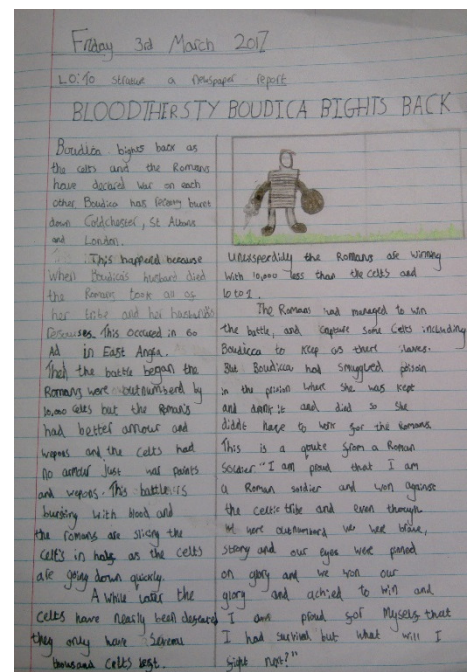 Friday 3rd March 2017
LO: To strature a newspaper report
BLOODTHERSTY BOUDICA BIGHTS BACK
Boudica bights back as
the celts and the Romans
have decared war on each
other Boudica has burnt
down Coldchester, St Albans
and London.
This happened because
when Boudica's husband died
the Romans took all of
her tribe and her husband's
This occured in 60
AD in East Angla.
The battle began the
Romans were outnumberd by
10,000 celts but the Romans
had better amour and
wepons and the celts had
no amour just war paints
and wepons. This battle is
bursting with blood and
the romans are slicing the
celts in as the celts
are going down quickly.
A while later the
celts have nearly been
they only have
thousand celts left.
the Romans are winning
with 10,000 less than the celts and
10 to 1.
The Romans had managed to win
the battle, and capture some celts including
Boudicca to keep as there slaves.
But Boudicca had smuggled poision
in the prision where she was kept
and drank it and died so she
didnt have to work for the Romans.
This is a qoute from a Roman
"I am proud that I am
a Roman soldier and won against
the celtic tribe and even though
were outnumberd we were brave,
strong and our eyes were
on glory and we won our
glory and achied to win and
I am proud for Myself that
I had survived but what will I
fight next?"